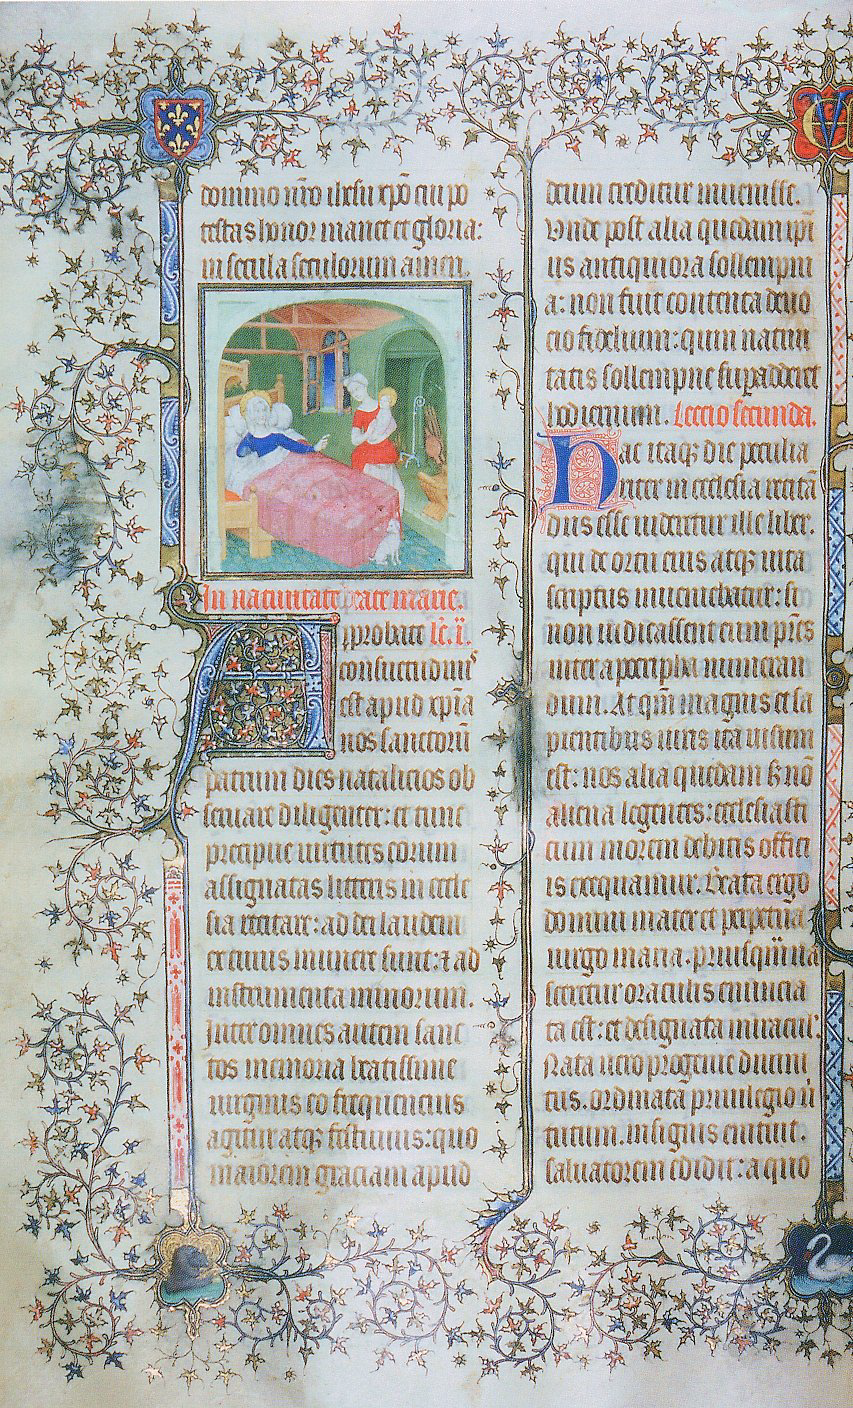 domino nr̄o ihesu xp̄o cui po
testas honor manet et gloria:
in secula seculorum amen
In natiuitate beate marie.
Approbate lc̄. i.
consuetudinis
est apud xp̄ia
nos sanctorum
patrum dies natalicios ob
seruare diligenter: et tunc
precipue uirtutes eorum
assignatas litteris in eccle
sia recitare: ad dei laudem
et cuius munere sunt: et ad
instrumenta minorum.
Inter omnes autem sanc
tos memoria beatissime
uirginis eo frequentius
agitur atq̄ festiuius: quo
maiorem graciam apud
deum creditur inuenisse.
Vnde post alia quedam ipi
us antiquiora sollempni
a: non fuit contenta deuo
cio fidelium: quin natiui
tatis sollempne superadderet
hodiernum. Leccio secunda.
Hac itaq̄ die peculia
riter in ecclesia recitā
dus esse uidetur ille liber.
qui de ortu eius atq̄ uita
scriptus inueniebatur: si
non iudicassent eum p̄res
inter apocripha numeran
dum. Atqm̄ magnis et sa
pientibus uiris ita uisum
est: nos alia quedam s̄ nō
aliena legentes: ecclesiasti
cum morem debitis offici
is exequamur. Beata ergo
domini mater et perpetua
uirgo maria. priusq̄m na
sceretur oraculis enuncia
ta est: et designata miraculis.
Nata uero progenie diuini
tus. ordinata priuilegio uir
tutum. insignis emicuit.
saluatorem edidit: a quo